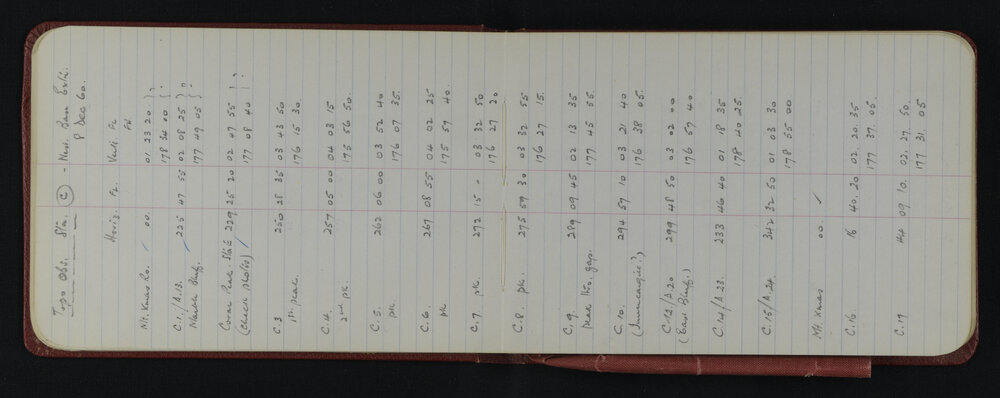 Topo Obs. Sta. C - New. Dan Extn.
8 Dec 60.
Horiz. FL. Verti FL
FR
Mt. Xmas Ro. 00. 01 23 20
178 34 00
C.1./A.13. 225 47 55 02 08 25
Marble Bluff. 177 49 05
Coral Peak. Stn? 229 25 20 02 47 55 ?
(check photos) 177 08 40
C 3 250 28 35 03 43 50
1st. peak. 176 15 30
C.4. 257 05 00 04 03 15
2nd pk. 175 56 50.
C. 5. 262 06 00 03 52 40
pk. 176 07 35.
C. 6. 267 08 55 04 02 25
pk 175 57 40.
C. 7 pk. 272 15 - 03 32 50
176 27 20
C. 8 pk. 275 59 30 03 32 55
176 27 15.
C. 9. 289 09 45 02 13 35
peak gap. 177 45 55.
C. 10. 294 57 10 03 21 40
176 38 05.
C.12/A 20 299 48 50 03 02 00
(East Bluff.) 176 57 40
C.14/A 23. 233 46 40 01 18 35
178 40 25
C.15/A.24. 342 32 50 01 03 30
178 55 00
Mt Xmas 00
C.16. 16 40. 20 02. 20. 35
177 37. 05.
C. 17 44 09 10. 02. 27 50.
177 31 05